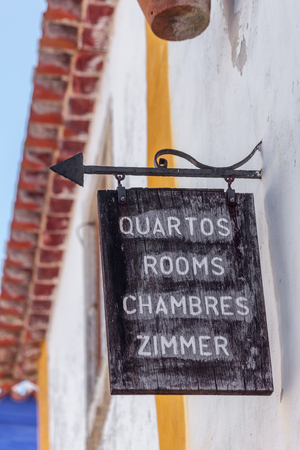 QUARTOS
ROOMS
CHAMBRES
ZIMMER